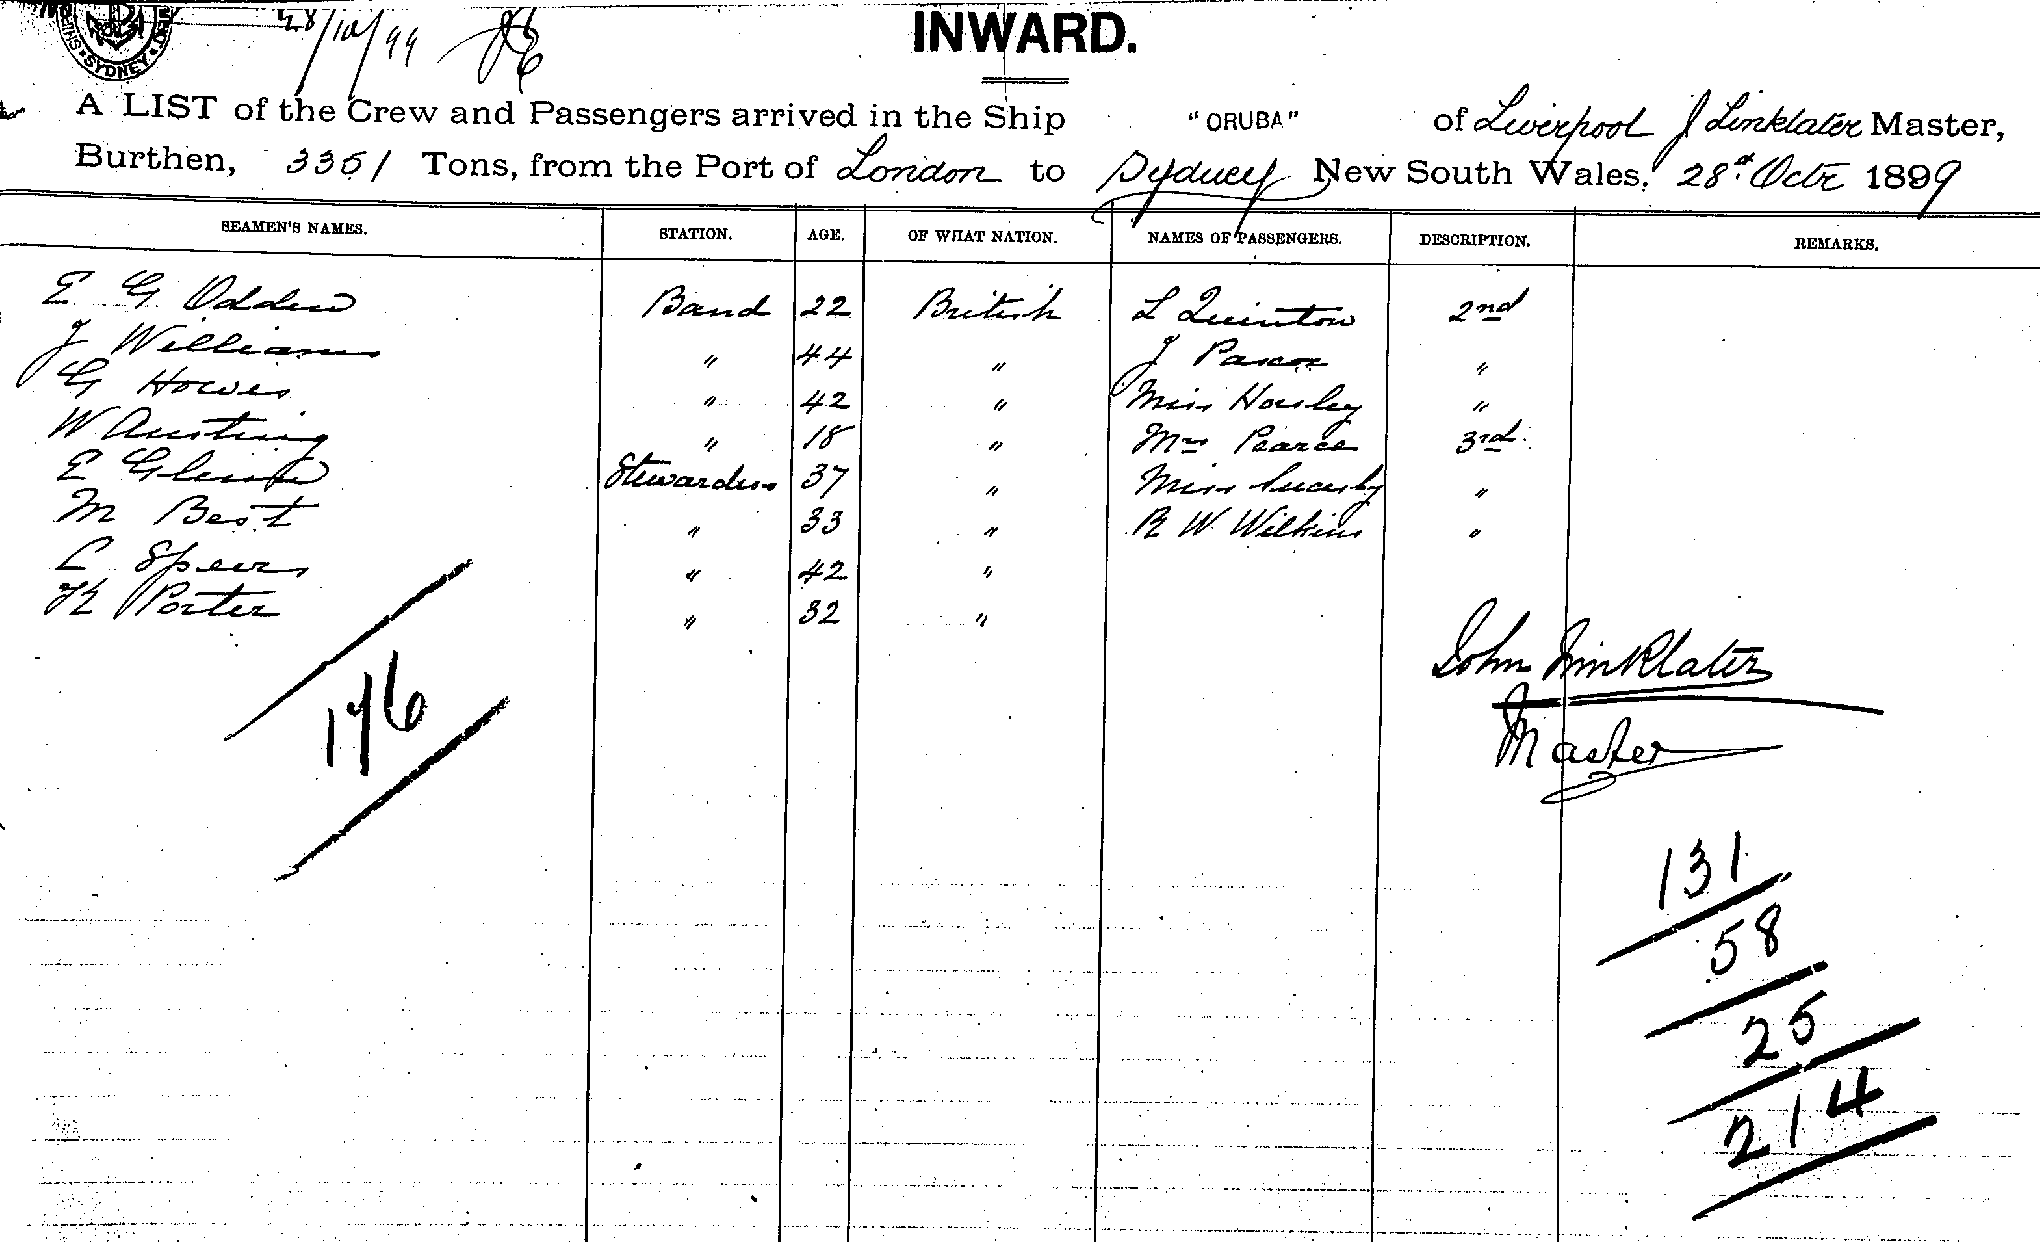 SYDNEY
28/10/99
INWARD.
A LIST of the Crew and Passengers arrived in the Ship "ORUBA" of Liverpool J Linklater Master,
Burthen, 3351 Tons, from the Port of London to Sydney New South Wales, 28th Octr 1899
SEAMEN'S NAMES. STATION. AGE. OF WHAT NATION. NAMES OF PASSENGERS. DESCRIPTION. REMARKS.
E G Odden Band 22 British L Quinton 2nd
J Williams " 44 " J Pascoe "
G Howes " 42 " Miss Horsley "
W Austing " 18 " Mrs Pearce 3rd
E Stewardess 37 " Miss "
M Best " 33 " R W Wilkins "
Spears " 42 "
Porter " 32 "
John Linklater
Master
176
131
58
25
214